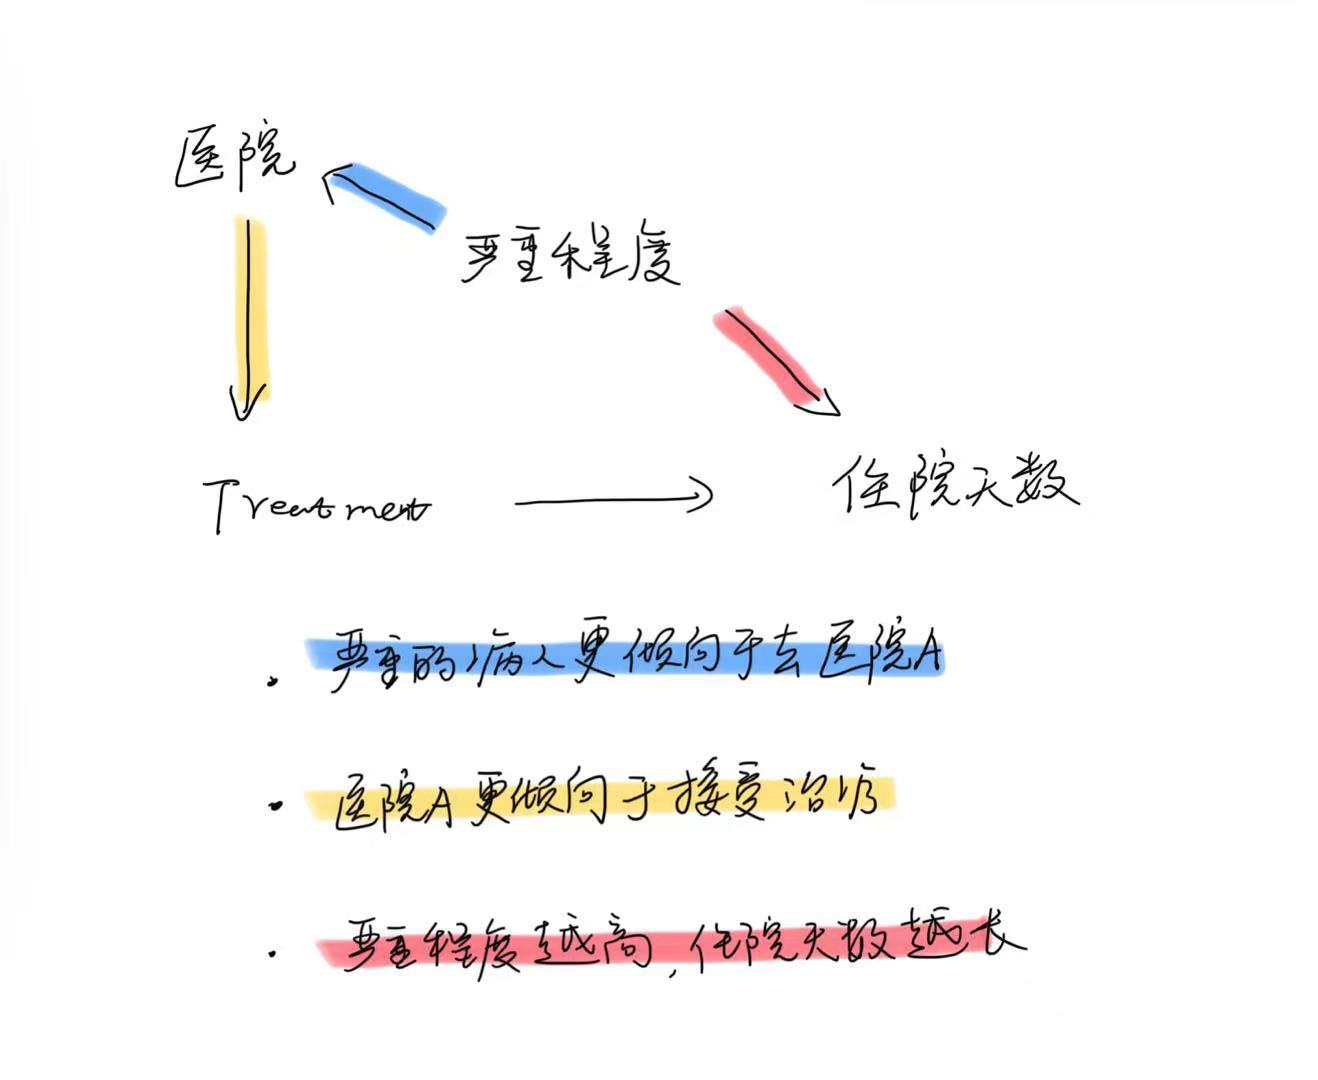 医院
严重程度
Treatment
住院天数
严重的病人更倾向于去医院A
医院A更倾向于接受治疗
严重程度越高,住院天数越长